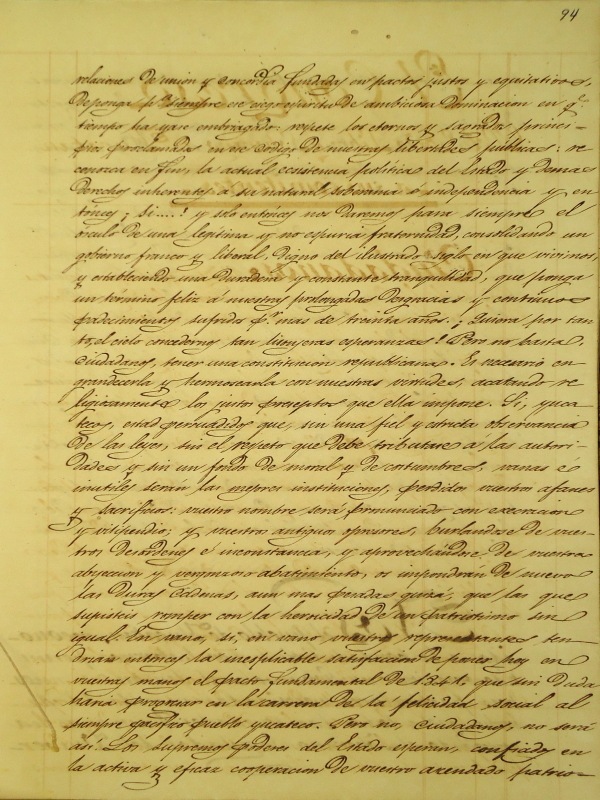 94
relaciones de union y concordia fundadas en pactos justos y equitativos,
deponga pr. siempre ese ciego espiritu de ambiciosa dominacion en qe.
tiempo ha yace embriagado: respete los eternos y sagrados princi-
pios proclamados en ese codigo de nuestras libertades publicas: re
conozca en fin, la actual ecsistencia politica del Estado y demas
derechos inherentes a su natural soberania é independencia y en
tónces ¡ si....! y solo entónces nos daremos para siempre el
ósculo de una legitima y no espuria fraternidad, consolidando un
gobierno franco y liberal, digno del ilustrado siglo en que vivimos,
y estableciendo una duradera y constante tranquilidad, que ponga
un término feliz á nuestras prolongadas desgracias y continuos
padecimientos sufridos pr. mas de treinta años. ¡ Quiera por tan
to, el cielo concedernos tan lisonjeras esperanzas! Pero no basta,
ciudadanos, tener una constitucion republicana. Es necesario en
grandecerla y hermosearla con nuestras virtudes, acatando re
ligiosamente los justos preceptos que ella impone. Si, yuca
tecos, estad persuadidos que, sin una fiel y estricta observancia
de las leyes, sin el respeto que debe tributarse á las autori-
dades y sin un fondo de moral y de costumbres, vanas é
inutiles serán las mejores instituciones, perdidos vuestros afanes
y sacrificios: vuestro nombre será pronunciado con execracion
y vilipendio; y, vuestros antiguos opresores, burlandose de vues-
tros desórdenes é inconstancia, y aprovechandose de vuestra
abyeccion y vergonzoso abatimiento, os impondrán de nuevo
las duras cadenas, aun mas pesadas quizá, que las que
supisteis romper con la heroicidad de un patriotismo sin
igual. En vano, si, en vano vuestros representantes ten
drian entonces la inesplicable satisfaccion de poner hoy en
vuestras manos el pacto fundamental de 1841. que sin duda
haria progresar en la carrera de la felicidad social al
siempre pacifico pueblo yucateco. Pero no, ciudadanos, no será
asi. Los supremos poderes del Estado esperan, confiados en
la activa y eficaz cooperacion de vuestro acendrado patrio-